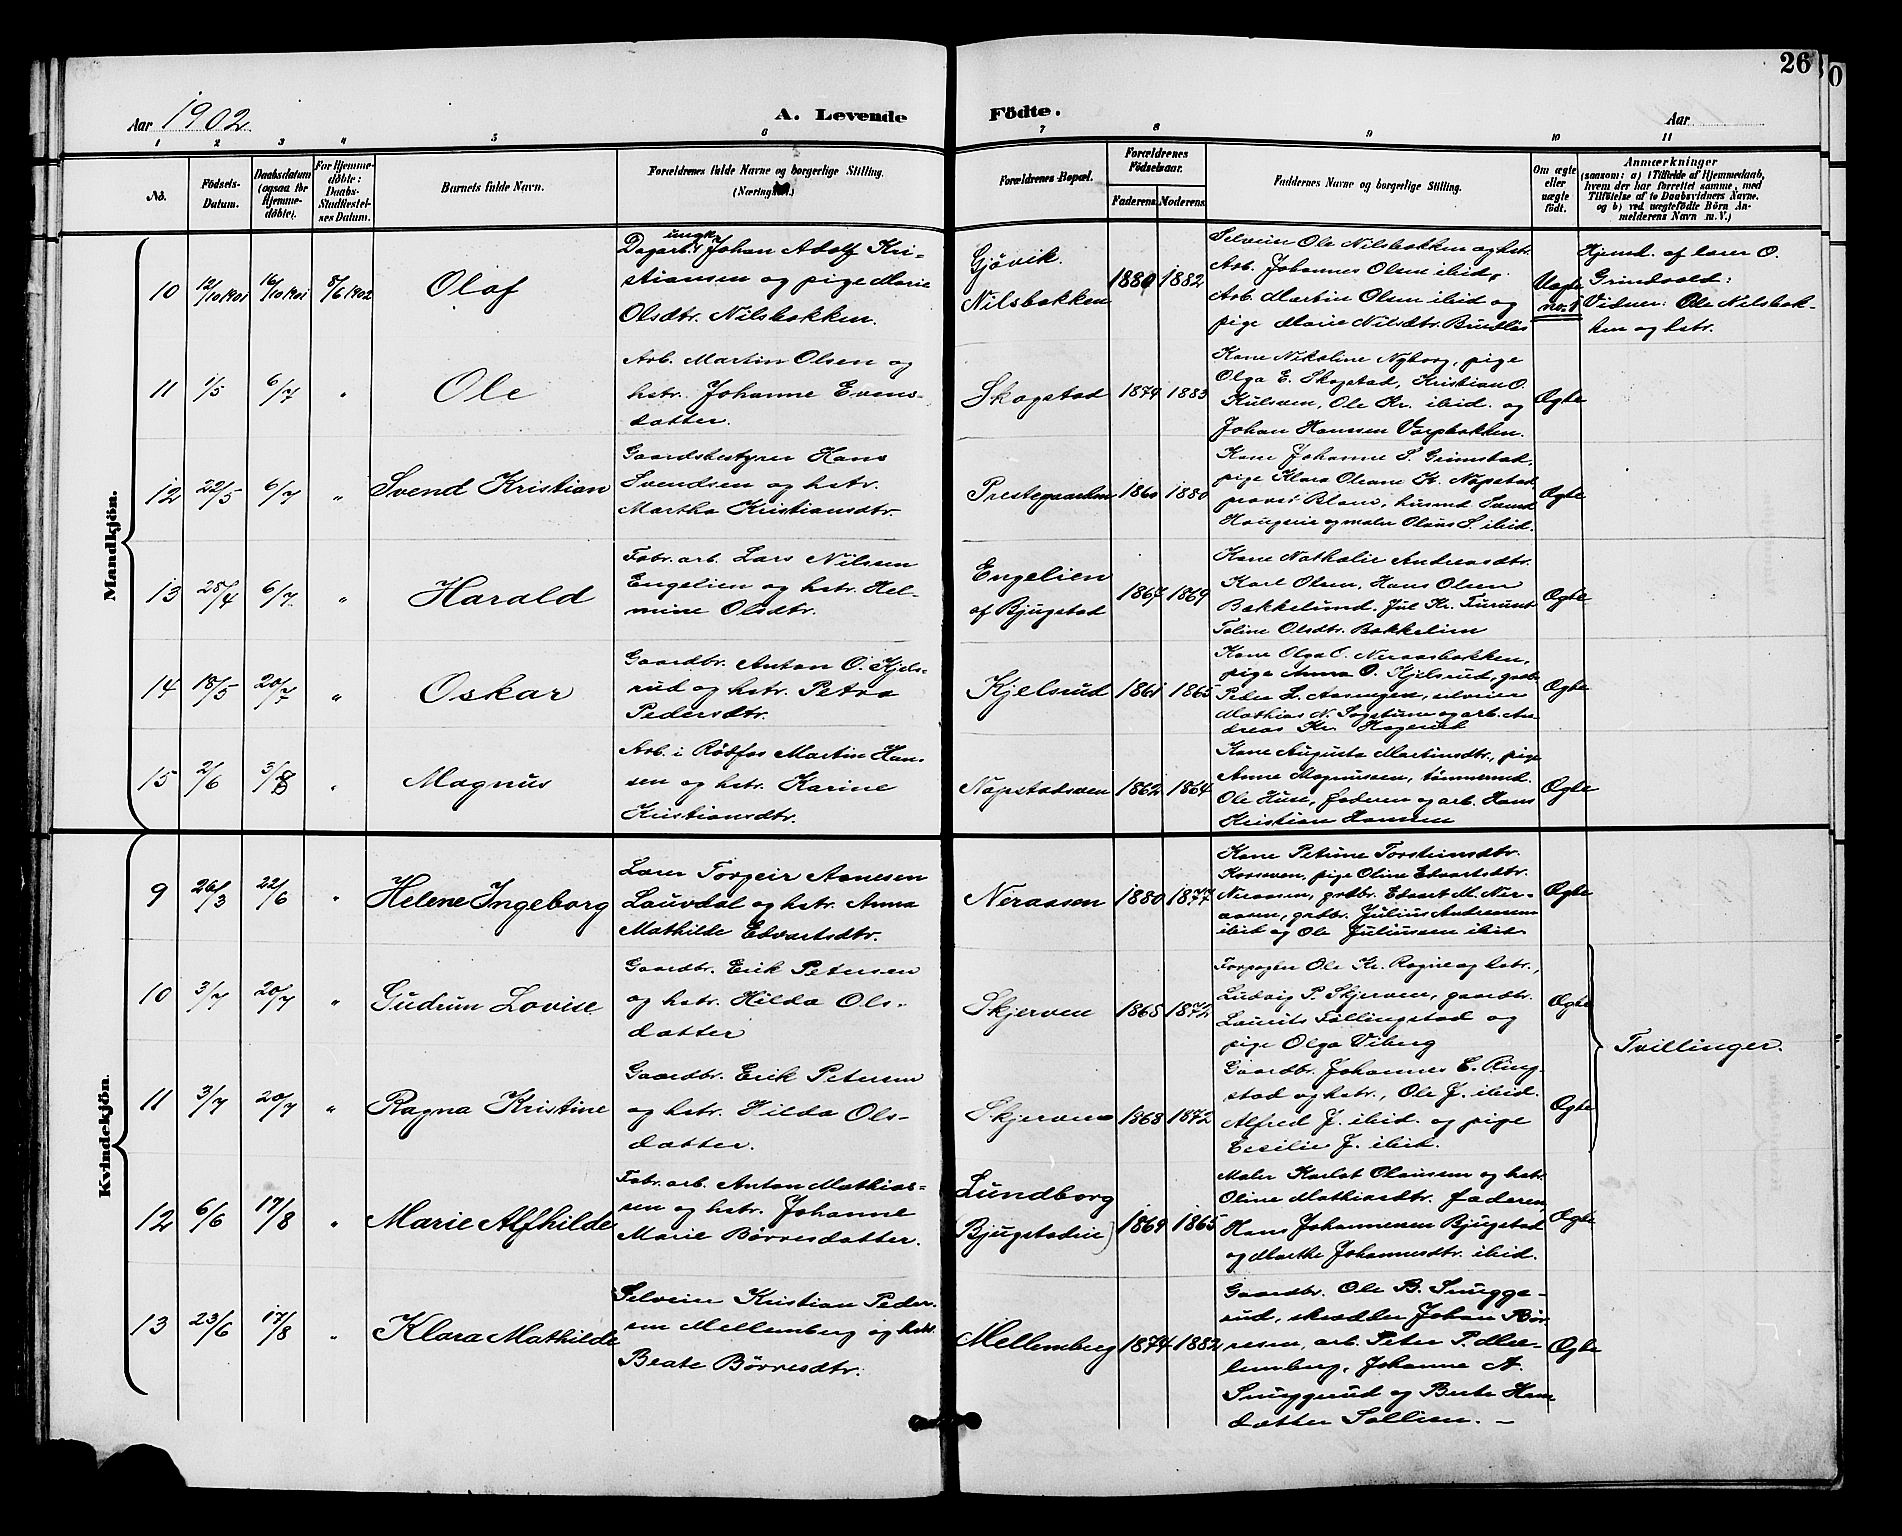 26
Aar 1902
A. Levende Födte.
Aar
1 2 3 4 5 6 7 8 9 10 11
No.
Födsels-
Datum.
Daabsdatum
(ogsaa for
Hjemme-
döbte).
For Hjemme-
döbte:
Daabs-
Stadfæstel-
ses Datum.
Barnets fulde Navn.
Forældrenes fulde Navne og borgerlige Stilling.
Forældrenes Bopæl.
Forældrenes
Födselsaar.
Faderens Moderens
Faddernes Navne og borgerlige Stilling.
Om ægte
eller
uægte
födt.
Anmærkninger
(saasom: a) i Tilfælde af Hjemmedaab,
hvem der har forrettet samme, med
Tilföielse af to Daabsvidners Navne.
og b) ved uægtefödte Börn An-
melderens Navn m. V.)
Mandkjön.
10 12/10 1901 16/10 1901 8/6 1902 Olaf
ungk.
Dagarb. Johan Adolf Kri-
stiansen og pige Marie
Olsdtr. Nilsbakken.
Gjövik.
Nilsbakken
1880 1882
Selveier Ole Nilsbakken og hstr.
Arb. Johannes Olsen ibid,
Arb. Martin Olsen ibid og
pige Marie Nilsdtr.
Uægte
no. 1
Hjemd. af lærer O.
Grindvold:
Vidner: Ole Nilsbak-
ken og hstr.
11 1/5 6/7 " Ole
Arb. Martin Olsen og
hstr. Johanne Evens-
datter.
Skogstad 1874 1883
Kone Nikoline Nyborg, pige
Olga E. Skogstad, Kristian O.
Kulsven, Ole Kr. ibid. og
Johan Hanssen Varpbakken.
Ægte
12 22/5 6/7 " Svend Kristian
Gaardsbestyrer Hans
Svendsen og hstr.
Martha Kristiansdtr.
Prestegaarden 1860 1880
Kone Johanne S. Grimstad,
pige Klara Oleane K. Nøpstad
provst Blanc, husmd. Svend
Haugseie og maler Olaus S. ibid.
Ægte
13 28/4 6/7 " Harald
Fabr. arb. Lars Nilsen
Engelien og hstr. Hel-
mine Olsdtr.
Engelien
af Bjugstad
1867 1869
Kone Nathalie Andreasdtr.
Karl Olsen, Hans Olsen
Bakkelund, Jul Kr.
Toline Olsdtr. Bakkelien
Ægte
14 18/5 20/7 " Oskar
Gaardbr. Anton O. Kjels-
rud og hstr. Petra
Pedersdtr.
Kjelsrud 1861 1865
Kone Olga O. Neraasbakken,
pige Anna O. Kjelsrud, gaardbr.
Peder L. Aasengen, selveier
Mathias N. Sogstuen og arb. An-
dreas Kr.
Ægte
15 2/6 3/8 " Magnus
Arb. i Rödfos Martin Han-
sen og hstr. Karine
Kristiansdtr.
Nøpstadsveen 1862 1864
Kone Augusta Martinsdtr., pige
Anne Magnussen, tømmermd.
Ole Huse, faderen og arb. Hans
Kristian Hansen
Ægte
Kvindekjön.
9 26/3 22/6 " Helene Ingeborg
Lærer Torgeir Aanesen
Lauvdal og hstr. Anna
Mathilde Edvartsdtr.
Neraasen 1880 1877
Kone Petrine Torstensdtr.
Korsveen, pige Oline Edvartsdtr.
Neraasen, grdbr. Edvart M. Ner-
aasen, grdbr. Julius Andreassen
ibid og Ole Juliussen ibid.
Ægte
10 3/7 20/7 " Gudrun Lovise
Gaardbr. Erik Petersen
og hstr. Hilda Ols-
datter
Skjerven 1868 1872
Forpagter Ole Kr. Ragne og hstr.,
Ludvig P. Skjerven, gaardbr.
Laurits Føllingstad og
pige Olga Viberg
Ægte
Tvillinger.
11 3/7 20/7 " Ragna Kristine
Gaardbr. Erik Petersen
og hstr. Hilda Ols-
datter.
Skjerven 1868 1872
Gaardbr. Johannes C. Ring-
stad og hstr., Ole J. ibid.
Alfred J. ibid. og pige
Cecilie J. ibid.
Ægte
12 6/6 17/8 " Marie Alfhilde
Fabr. arb. Anton Mathias-
sen og hstr. Johanne
Marie Børresdatter.
Lundborg
Bjugstadeie)
1869 1865
Maler Karlot Olaussen og hstr.
Oline Mathiasdtr. faderen,
Hans Johannesen Bjugstad
og Marthe Johannesdtr. ibid.
Ægte
13 23/6 17/8 " Klara Mathilde
Selveier Kristian Peder-
sen Mellemberg og hstr.
Beate Børresdtr.
Mellemberg 1874 1882
Gaardbr. Ole B. Snugge-
rud, skrædder Johan Bør-
resen, arb. Peter P. Mel-
lemberg, Johanne A.
Snuggerud og Berte Hans-
datter Sollien. —
Ægte